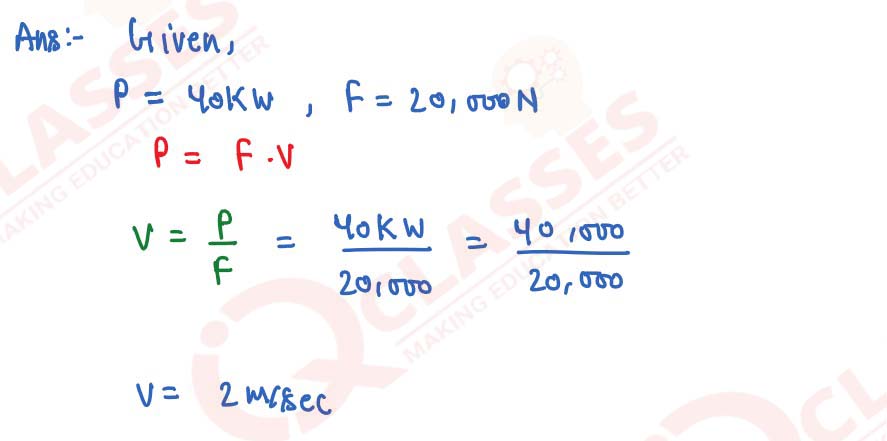 Ans:- Given,
P = 40KW , F = 20,000N
P = F.V
V = P/F = 40KW/20,000 = 40,000/20,000
V = 2 m/sec
CLASSES
MAKING EDUCATION BETTER
CLASSES
MAKING EDUCATION BETTER
CL